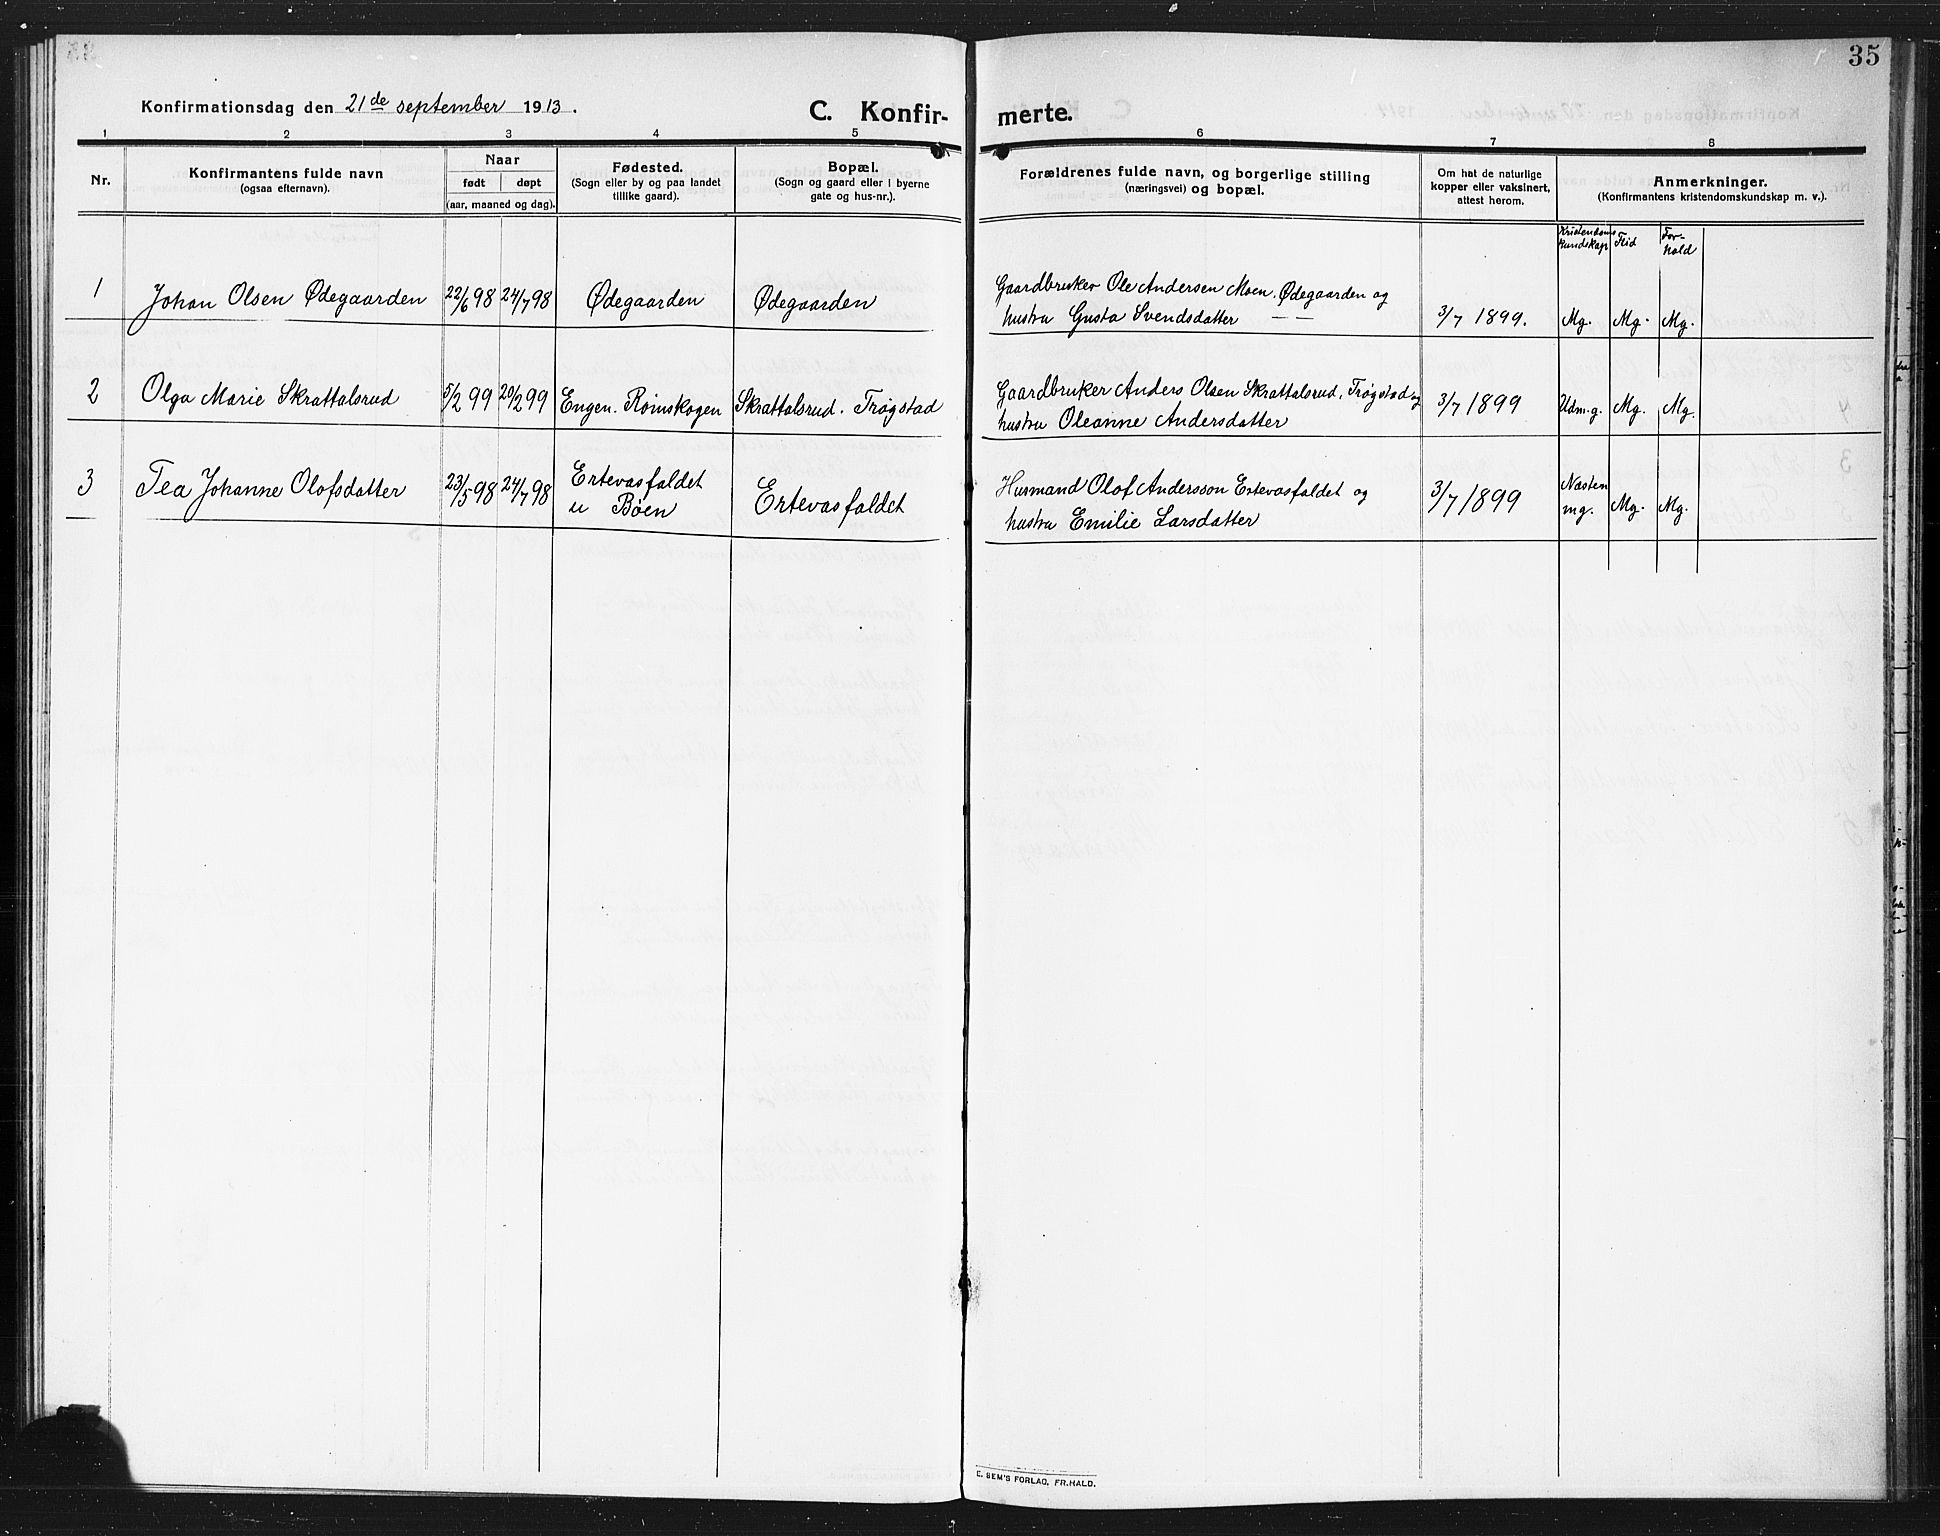 35
Konfirmationsdag den 21de september 1913.
C. Konfir-
merte.
1 2 3 4 5 6 7 8
Nr.
Konfirmantens fulde navn
(ogsaa efternavn).
Naar
født døpt
(aar, maaned og dag).
Fødested.
(Sogn eller by og paa landet
tillike gaard).
Bopæl.
(Sogn og gaard eller i byerne
gate og hus-nr.).
Forældrenes fulde navn, og borgerlige stilling
(næringsvei) og bopæl.
Om hat de naturlige
kopper eller vaksinert,
attest herom.
Anmerkninger.
(Konfirmantens kristendomskundskap m. v.).
Kristendoms
kundskap
Flid
For-
hold
1 Johan Olsen Ødegaarden 22/6 98 24/7 98 Ødegaarden Ødegaarden
Gaardbruker Ole Andersen Moen. Ødegaarden og
hustru Gusta Svendsdatter
3/7 1899. Mg. Mg. Mg.
2 Olga Marie Skrattalsrud 5/2 99 20/2 99 Engen. Rømskogen Skrattalsrud. Trøgstad
Gaardbruker Anders Olsen Skrattalsrud, Trøgstad og
hustru Oleanne Andersdatter
3/7 1899 Udm.g. Mg. Mg.
3 Tea Johanne Olofsdatter 23/5 98 24/7 98 Ertevasfaldet
u Bøen
Ertevasfaldet
Husmand Olof Andersson Ertevasfaldet og
hustru Emilie Larsdatter
3/7 1899 Næsten
mg. Mg. Mg.
E. SEM'S FORLAG, FR.HALD.